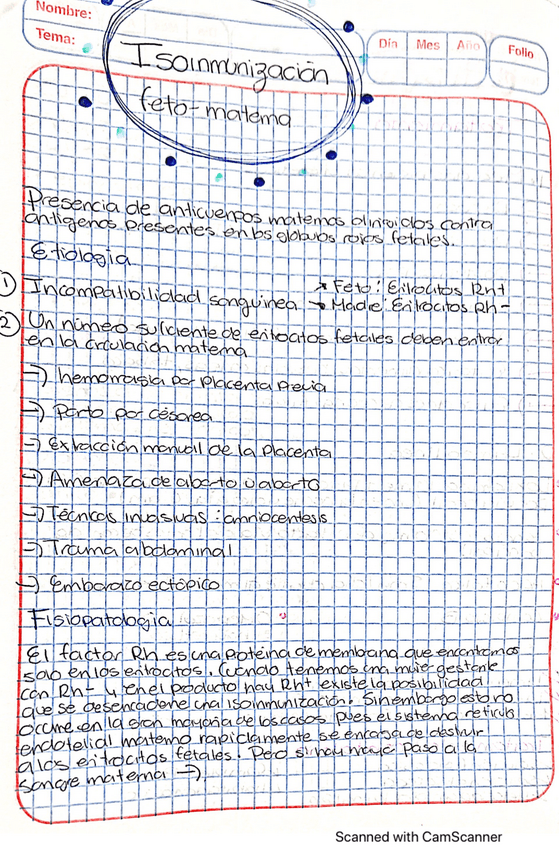 Nombre:
Tema:
Día Mes Año
Folio
Isoinmunización
feto-materna
Presencia de anticuerpos maternos dirigidos contra
antígenos presentes en los glóbulos rojos fetales.
Etiología
① Incompatibilidad sanguínea → Feto: Eritrocitos Rh+
→ Madre: Eritrocitos Rh-
② Un número suficiente de eritrocitos fetales deben entrar
en la circulación materna
→ hemorragia por placenta previa
→ Parto por césarea
→ Extracción manual de la placenta
→ Amenaza de aborto u aborto
→ Técnicas invasivas: amniocentesis
→ Trauma abdominal
→ Embarazo ectópico
Fisiopatología
El factor Rh es una proteína de membrana que encontramos
solo en los eritrocitos. Cuando tenemos una mujer gestante
con Rh- y en el producto hay Rh+ existe la posibilidad
que se desencadene una isoinmunización. Sin embargo esto no
ocurre en la gran mayoría de los casos pues el sistema retículo
endotelial materno rapidamente se encarga de destruir
a los eritrocitos fetales. Pero si hay paso a la
sangre materna →
Scanned with CamScanner